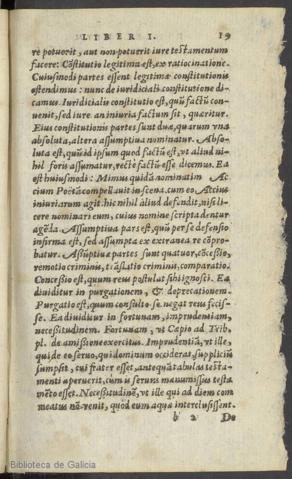 LIBER I. 19
re potuerit, aut non potuerit iure testamentum
facere: Cōstitutio legitima est, ex ratiocinatione.
Cuiusmodi partes essent legitimæ constitutionis
ostendimus: nunc de iuridiciali constitutione di-
camus. Iuridicialis constitutio est, quū factū con-
uenit, sed iure an iniuria factum sit, quæritur.
Eius constitutionis partes sunt duæ, quarum vna
absoluta, altera assumptiua nominatur. Abso-
luta est, quū id ipsum quod factū est, vt aliud ni-
hil foris assumatur, rectè factū esse dicemus. Ea
est huiusmodi: Mimus quidā nominatim Ac
cium Poëtā compellauit in scena. cum eo Attius
iniuriarum agit. hic nihil aliud defendit, nisi li-
cere nominari eum, cuius nomine scripta dentur
agēda. Assumptiua pars est, quū per se defensio
infirma est, sed assumpta ex extranea re cōpro-
batur. Assūptiuæ partes sunt quatuor, cōcessio,
remotio criminis, trāslatio criminis, comparatio.
Concessio est, quum reus postulat sibi ignosci. Ea
diuiditur in purgationem, & deprecationem.
Purgatio est, quum consulto se negat reus fecis-
se. Ea diuiditur in fortunam, imprudentiam,
necessitudinem. Fortunam, vt Cæpio ad Trib.
pl. de amissione exercitus. Imprudentiā, vt ille,
qui de eo seruo, qui dominum occiderat, suppliciū
sumpsit, cui frater esset, antequā tabulas testa-
menti aperuerit, cum is seruus manumissus testa
mēto esset. Necessitudinē, vt ille qui ad diem com
meatus nō venit, quòd eum aquæ interclusissent.
b 2 De
Biblioteca de Galicia